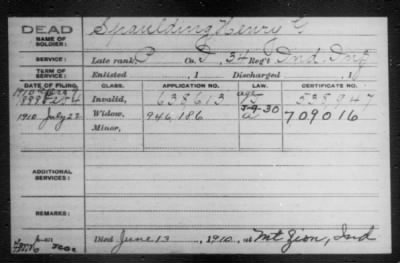 DEAD Spaulding, Henry G.
NAME OF SOLDIER:
SERVICE: Late rank, P Co. D, 34 Reg't Ind. Inf
TERM OF SERVICE: Enlisted , 1 Discharged , 1
DATE OF FILING. CLASS. APPLICATION NO. LAW. CERTIFICATE NO.
Invalid, 638613 538947
1910 July 22 Widow, 946186 709016
Minor,
ADDITIONAL SERVICES:
REMARKS:
Died June 13, 1910, at Mt Zion, Ind